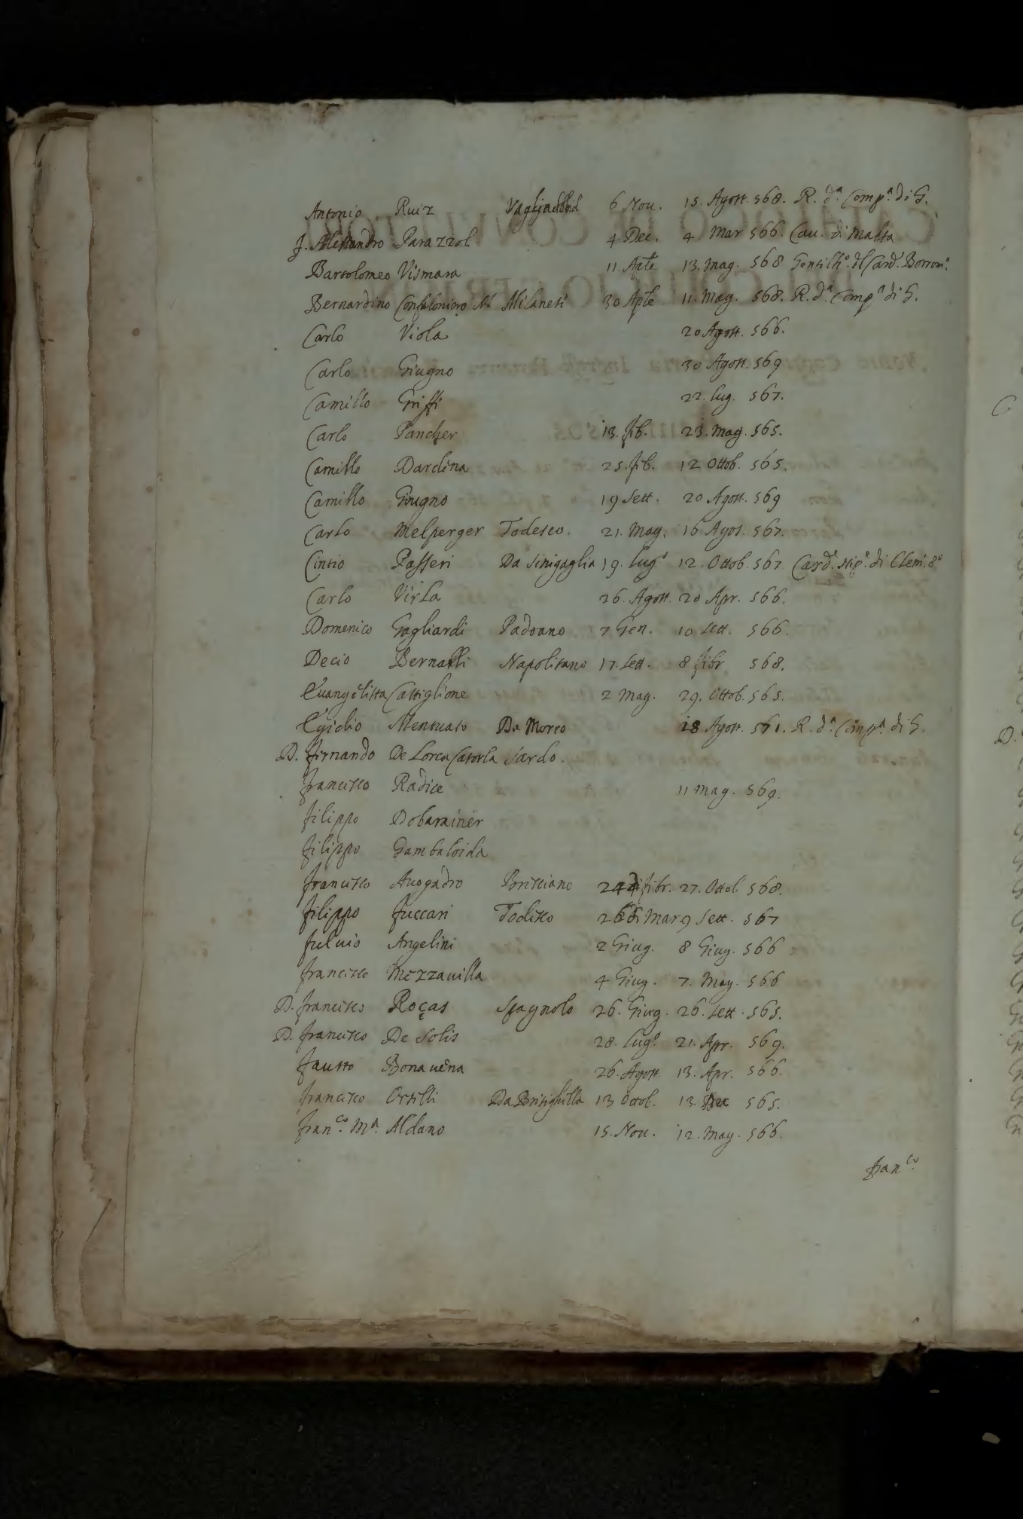 Antonio Ruiz 6 Nou. 15. Agost. 568. R. d.ª Comp.ª di G.
Parazzol 4 Dec. 4 Mar 566. Cau. di Malta
Bartolomeo Vismara 11. Aple 13. mag. 568 Gentilh.º dl Card. Borrom.º
Bernardino Milanesi 30 Aple 11. Mag. 568. R. d.ª Comp.ª di G.
Carlo Viola 20 Agost. 566.
Carlo Giugno 30 Agost. 569
Camillo Griffi 22. lug. 567.
Carlo Pancher 13. fib. 23. mag. 565.
Camillo Dardina 25. fib. 12. Ottob. 565.
Camillo Giugno 19 Sett. 20 Agost. 569
Carlo Melperger Todesco. 21. Mag. 16 Agos. 567.
Cintio Passeri Da Sinigaglia 19. lug.º 12. Ottob. 567 Card. Nip.º di Clem. 8.º
Carlo Virla 26. Agost. 20 Apr. 566.
Domenico Gagliardi Padoano 7 Gen. 10 Sett. 566.
Decio Napolitano 17. Sett. 8 fibr 568.
Euangelista Castiglione 2 mag. 29. Ottob. 565.
Egidio Da Morco 18 Agost. 571. R. d.ª Comp.ª di G.
D. firnando De Lorca Sardo.
francisco Radice 11 mag. 569.
filippo Dobarainer
filippo Gambaloida
francisco Auogadro Brisciano fibr. 27. Ottob. 568.
filippo fuccari Todisco Mar 9 Sett. 567
fuluio Angelini 2 Giug. 8 Giug. 566
francisco Mezzauilla 4 Giug. 7. May. 566
D. francisco Roças Spagnolo 26. Giug. 26. Sett. 565.
D. francisco De Solis 28. lug.º 21. Apr. 569.
fausto Bonauena 26. Agost. 13. Apr. 566.
francisco Orselli Da Brisighella 13 Ottob. 13. Dec 565.
fran.co M.ª Aldano 15. Nou. 12. May. 566.
fran.co